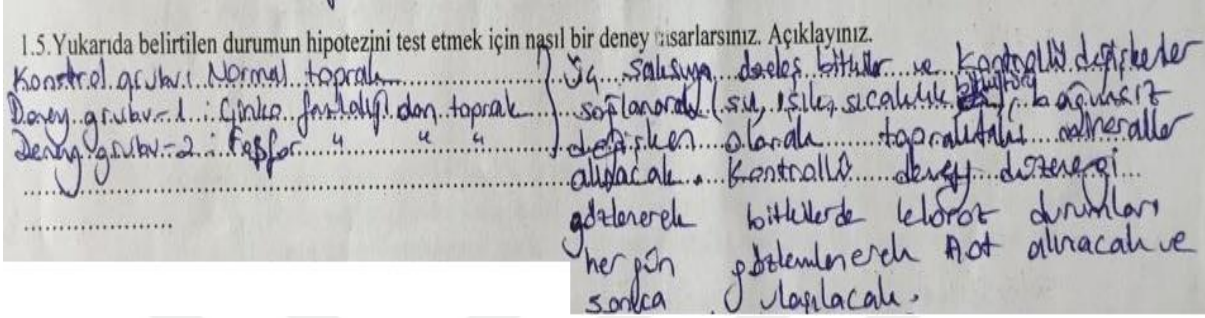 1.5.Yukarıda belirtilen durumun hipotezini test etmek için nasıl bir deney tasarlarsınız. Açıklayınız.
Kontrol grubu: Normal toprak
Deney grubu-1: Çinko fazlalığı olan toprak
Deney grubu-2: Fosfor " " "
Üç saksıya özdeş bitkiler ve kontrollü değişkenler
sağlanarak (su, ışık, sıcaklık), bağımsız
değişken olarak topraktaki mineraller
alınacak. Kontrollü deney düzeneği
gözlenerek bitkilerde kloroz durumları
her gün gözlemlenerek not alınacak ve
sonuca ulaşılacak.